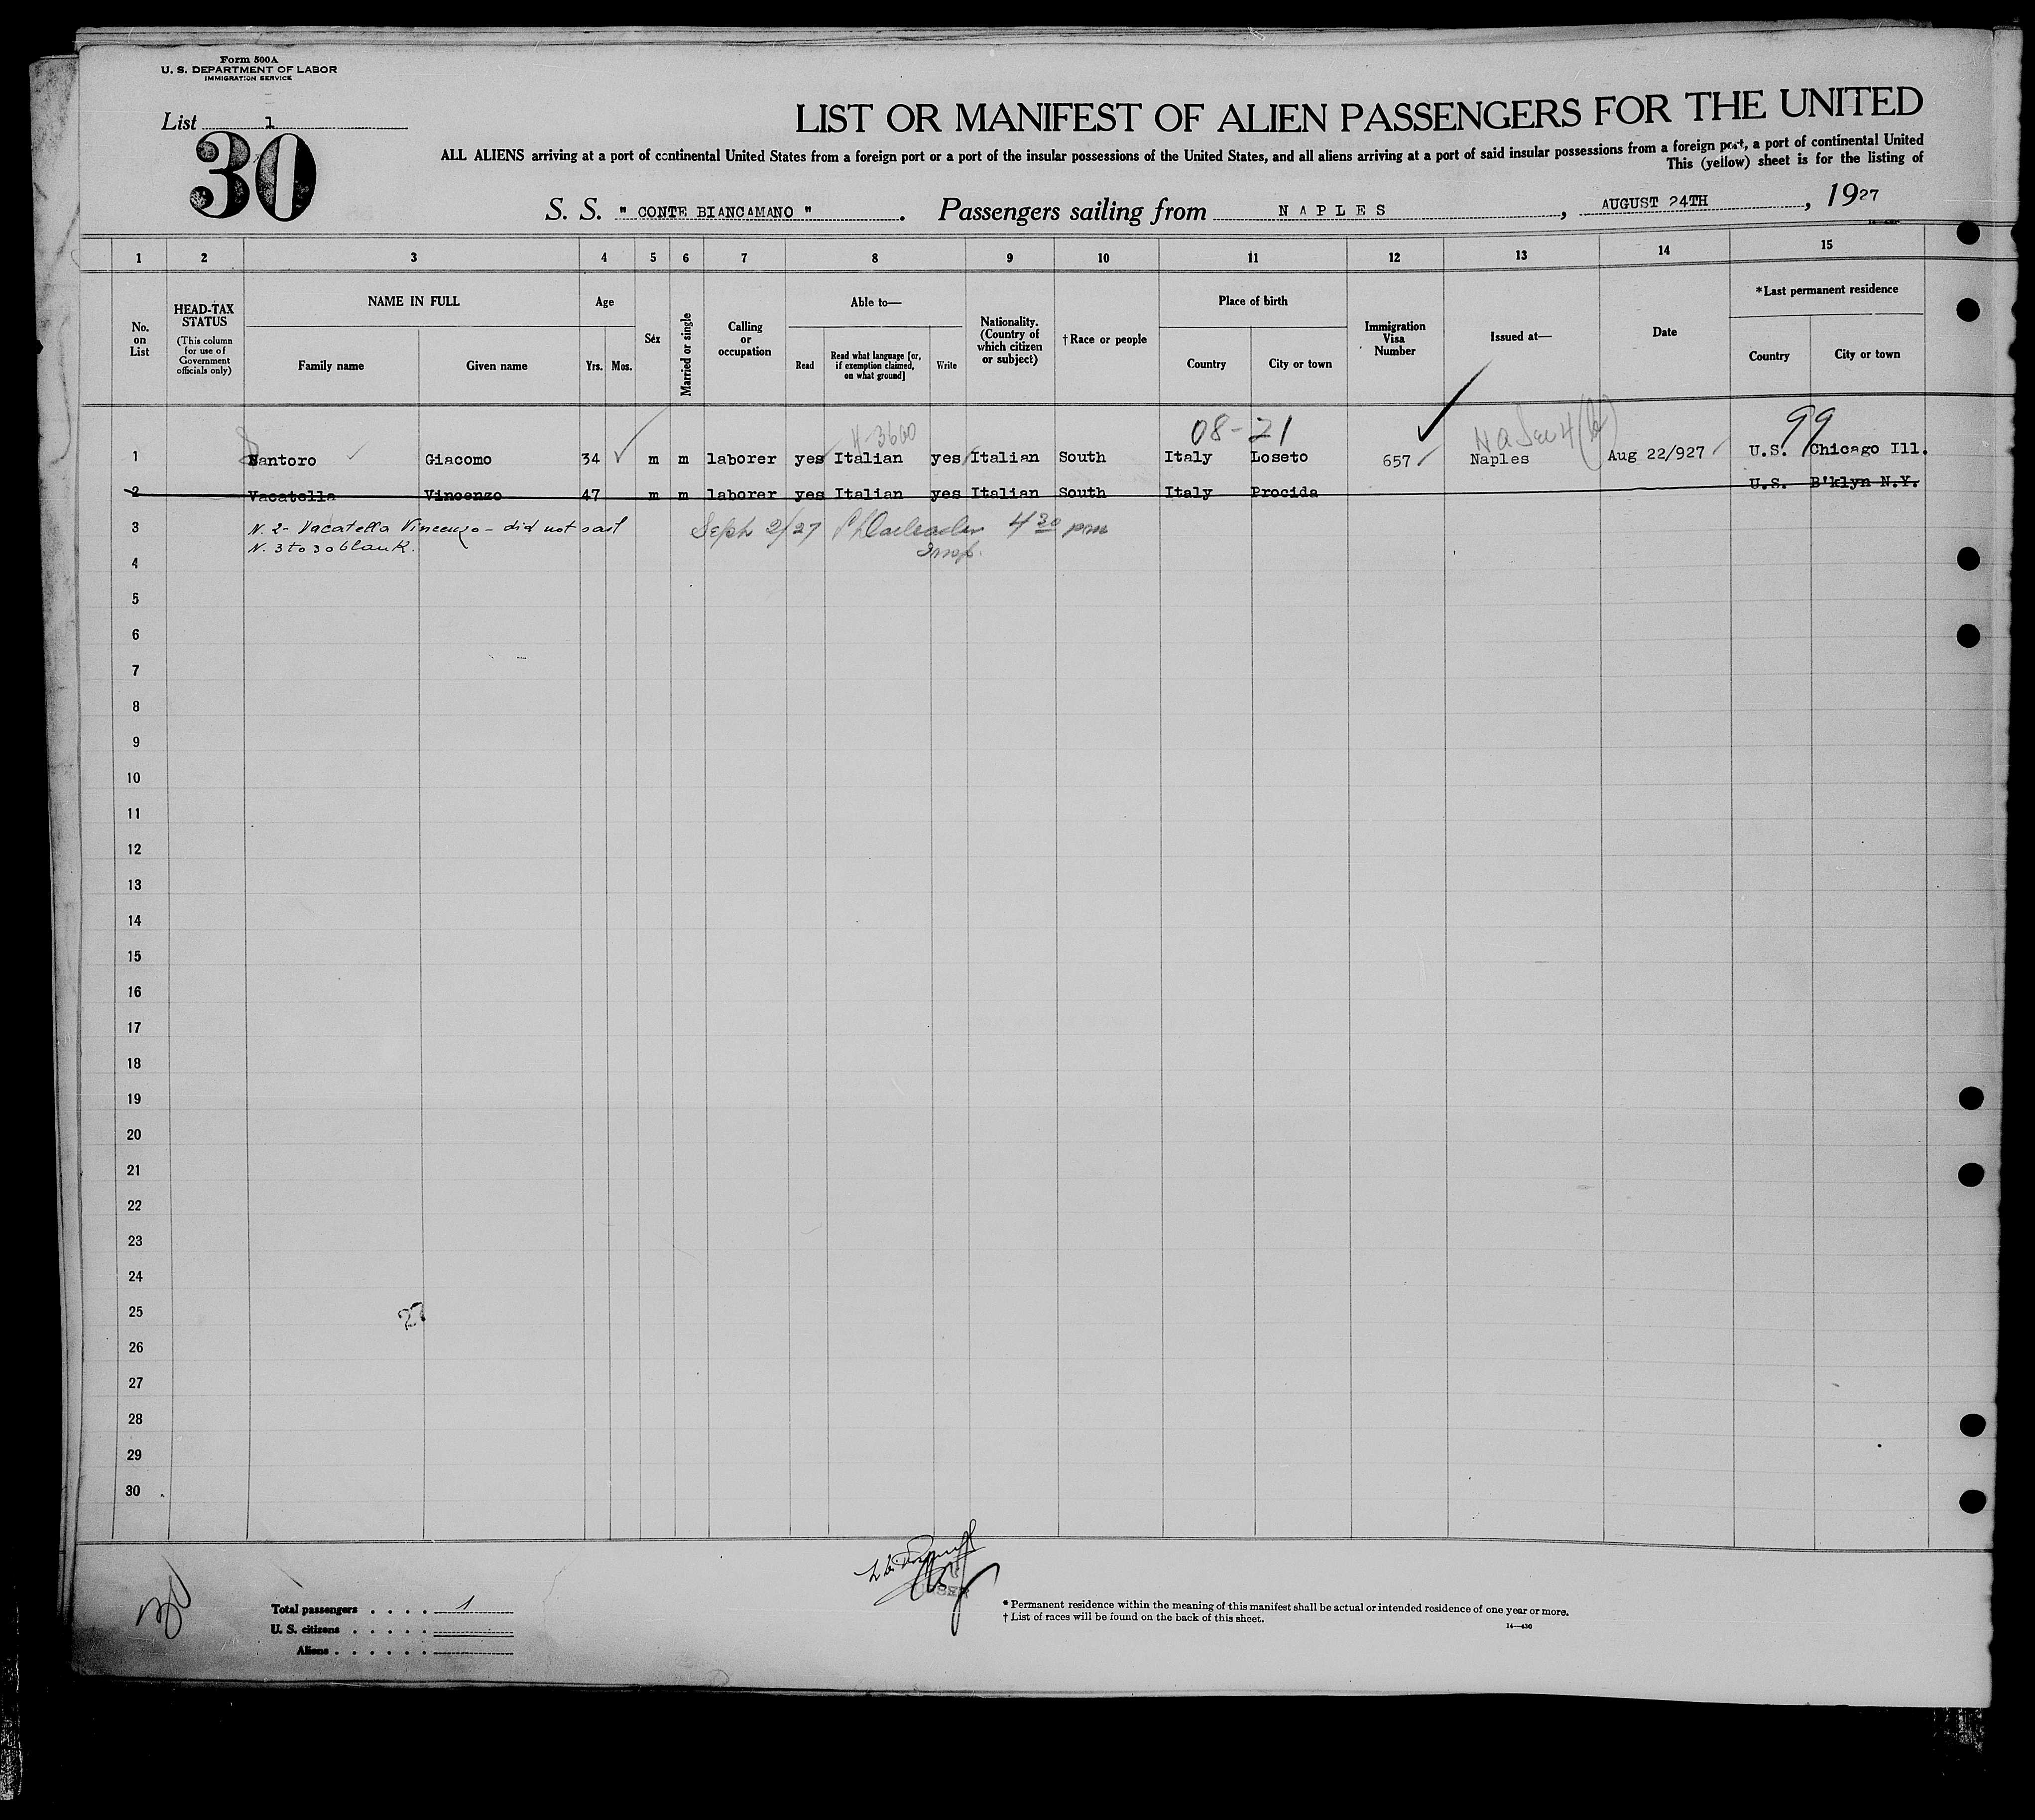 Form 500A
U. S. DEPARTMENT OF LABOR
IMMIGRATION SERVICE
List 1
30
LIST OR MANIFEST OF ALIEN PASSENGERS FOR THE UNITED
ALL ALIENS arriving at a port of continental United States from a foreign port or a port of the insular possessions of the United States, and all aliens arriving at a port of said insular possessions from a foreign port, a port of continental United
This (yellow) sheet is for the listing of
S. S. " CONTE BIANCAMANO " . Passengers sailing from NAPLES , AUGUST 24TH , 1927
1 2 3 4 5 6 7 8 9 10 11 12 13 14 15
No. on List
HEAD-TAX STATUS
(This column for use of Government officials only)
NAME IN FULL
Family name Given name
Age
Yrs. Mos.
Sex
Married or single
Calling or occupation
Able to—
Read
Read what language [or, if exemption claimed, on what ground]
Write
Nationality. (Country of which citizen or subject)
†Race or people
Place of birth
Country City or town
Immigration Visa Number
Issued at—
Date
*Last permanent residence
Country City or town
4-3600 08-21 99
1 Santoro Giacomo 34 m m laborer yes Italian yes Italian South Italy Loseto 657 Naples Aug 22/927 U.S. Chicago Ill.
2 Vacatella Vincenzo 47 m m laborer yes Italian yes Italian South Italy Procida U.S. B'klyn N.Y.
3 N. 2- Vacatella Vincenzo - did not sail Sept 2/27 4 30 pm
N. 3 to 30 blank. Insp.
4
5
6
7
8
9
10
11
12
13
14
15
16
17
18
19
20
21
22
23
24
25 27
26
27
28
29
30
30
Total passengers . . . . 1
U. S. citizens . . . . .
Aliens . . . . . .
* Permanent residence within the meaning of this manifest shall be actual or intended residence of one year or more.
† List of races will be found on the back of this sheet.
14—430